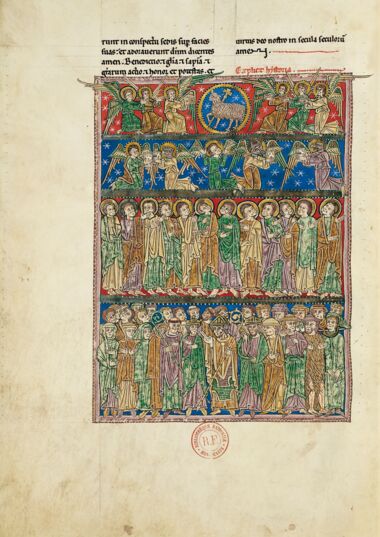 runt in conspectu sedis sup facies
suas: et adoraverunt dnm dicentes
amen. Benedictio: et gła: et sapīa. et
gr̄arum actio. et honor. et potestas. et
virtus deo nostro in secula seculorū
amen.
Explicit historia.
B.F.